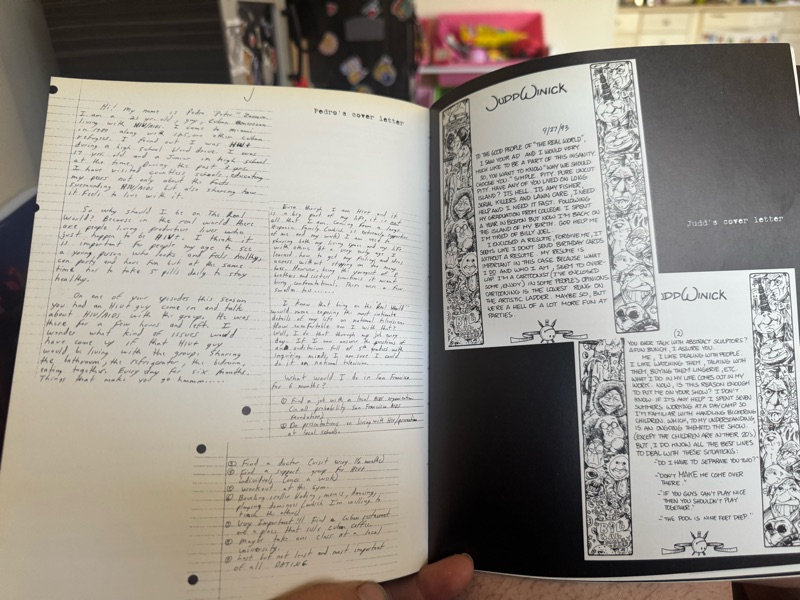 Pedro's cover letter
Hi! My name is Pedro "Pedro" Zamora.
I am a 21 yr old, gay, Cuban American
living with HIV/AIDS. I came to Miami
in 1980 along with 125,000 other Cuban
refugees. I found out I was HIV+
during a high school blood drive. I was
17 yrs old and a Junior in high school
at the time. During the past 4 years
I have visited countless schools, educating
my peers not only about the facts
surrounding HIV/AIDS but also sharing how
it feels to live with it.
So why should I be on The Real
World? Because in the real world there
are people living productive lives who
just happen to be HIV+. I think it
is important for people my age to see
a young person who looks and feels healthy,
can party and have fun but at the same
time has to take 5 pills daily to stay
healthy.
On one of your episodes this season
you had an HIV+ guy come in and talk
about HIV/AIDS with the group. He was
there for a few hours and left. I
wonder what kind of issues would
have come up if that HIV+ guy
would be living with the group. Sharing
the bathroom, the refrigerator, the bedroom,
eating together. Every day for six months.
Things that make you go hmmm.....
Even though I am HIV+ and it
is a big part of my life, it is not
others. At a very young age I
learned how to
I know that being on the Real World
would mean exposing the most intimate
details of my life on national television.
How comfortable am I with that?
Well, I do that through my job every
day. If I can answer the questions of
an auditorium full of 5th graders with
inquiring minds, I am sure I could
do it on national television.
What would I do in San Francisco
for 6 months?
① Find a job with a local AIDS organization
(in all probability San Francisco AIDS
Foundation)
② Do presentations on living with HIV/prevention
at local schools.
③ Find a doctor
④ Find a support group for HIV+
⑤ Workout at the gym.
⑥
playing dominoes (which I'm willing to
teach the others)
⑦ Very Important!!! Find a Cuban restaurant
and a place that sells Cuban coffee.
⑧ Maybe take one class at a local
university.
⑨ Last but not least and most important
of all DATING
JUDD WINICK
9/27/93
TO THE GOOD PEOPLE OF "THE REAL WORLD",
I SAW YOUR AD AND I WOULD VERY
MUCH LIKE TO BE A PART OF THIS INSANITY.
SO, YOU WANT TO KNOW "WHY WE SHOULD
CHOOSE YOU." SIMPLE. PITY. PURE UNCUT
PITY. HAVE ANY OF YOU LIVED ON LONG
ISLAND? ITS HELL. ITS AMY FISHER,
SERIAL KILLERS AND LAWN CARE. I NEED
HELP AND I NEED IT FAST. FOLLOWING
MY GRADUATION FROM COLLEGE I SPENT
A YEAR IN BOSTON BUT NOW I'M BACK ON
THE ISLAND OF MY BIRTH. GOD HELP ME
I'M TIRED OF BILLY JOEL.
I ENCLOSED A RESUME, FORGIVE ME, IT
SEEMS LIKE I DON'T SEND BIRTHDAY CARDS
WITHOUT A RESUME. MY RESUME IS
IMPORTANT IN THIS CASE BECAUSE WHAT
I DO AND WHO I AM, SEEM TO OVER-
LAP. I'M A CARTOONIST (I'VE ENCLOSED
SOME, ENJOY) IN SOME PEOPLE'S OPINIONS
CARTOONING IS THE LOWEST RUNG ON
THE ARTISTIC LADDER. MAYBE SO, BUT
WE'RE A HELL OF A LOT MORE FUN AT
PARTIES.
Judd's cover letter
JUDD WINICK
(2)
YOU EVER TALK WITH ABSTRACT SCULPTORS?
A GRIM BUNCH, I ASSURE YOU.
ME, I LIKE DEALING WITH PEOPLE.
I LIKE WATCHING THEM, TALKING WITH
THEM, BUYING THEM LINGERIE, ETC.
WHAT I DO IN MY LIFE COMES OUT IN MY
WORK. NOW, IS THIS REASON ENOUGH
TO PUT ME ON YOUR SHOW? I DON'T
KNOW. IF ITS ANY HELP I SPENT SEVEN
SUMMERS WORKING AT A DAY CAMP SO
I'M FAMILIAR WITH HANDLING BICKERING
CHILDREN. WHICH, TO MY UNDERSTANDING
IS AN ONGOING THEME TO THE SHOW.
(EXCEPT THE CHILDREN ARE IN THEIR 20'S)
BUT, I DO KNOW ALL THE BEST LINES
TO DEAL WITH THESE SITUATIONS:
-"DO I HAVE TO SEPARATE YOU TWO?"
-"DON'T MAKE ME COME OVER
THERE."
-"IF YOU GUYS CAN'T PLAY NICE
THEN YOU SHOULDN'T PLAY
TOGETHER."
-"THE POOL IS NINE FEET DEEP."